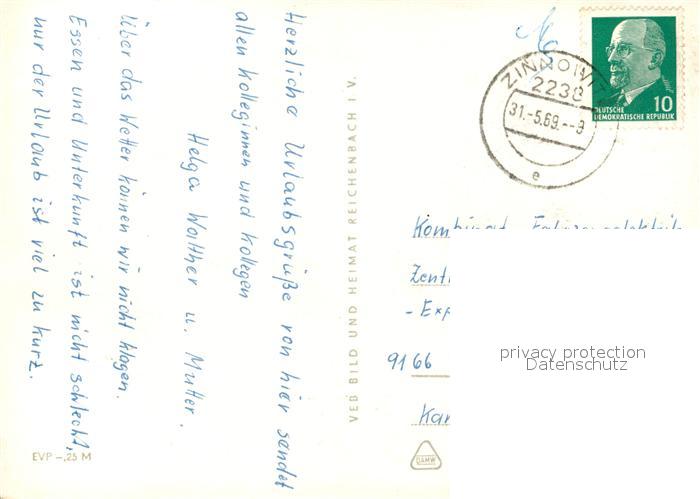 Herzliche Urlaubsgrüße von hier sendet
allen Kolleginnen und Kollegen
Helga Walther u. Mutter.
Über das Wetter können wir nicht klagen.
Essen und Unterkunft ist nicht schlecht,
nur der Urlaub ist viel zu kurz.
EVP –,25 M
VEB BILD UND HEIMAT REICHENBACH I V.
ZINNOWITZ
2238
31.-5.69.--9
e
10
DEUTSCHE
DEMOKRATISCHE REPUBLIK
Kombinat
Zent
- Exp
9166
Kar
DAMW
privacy protection
Datenschutz